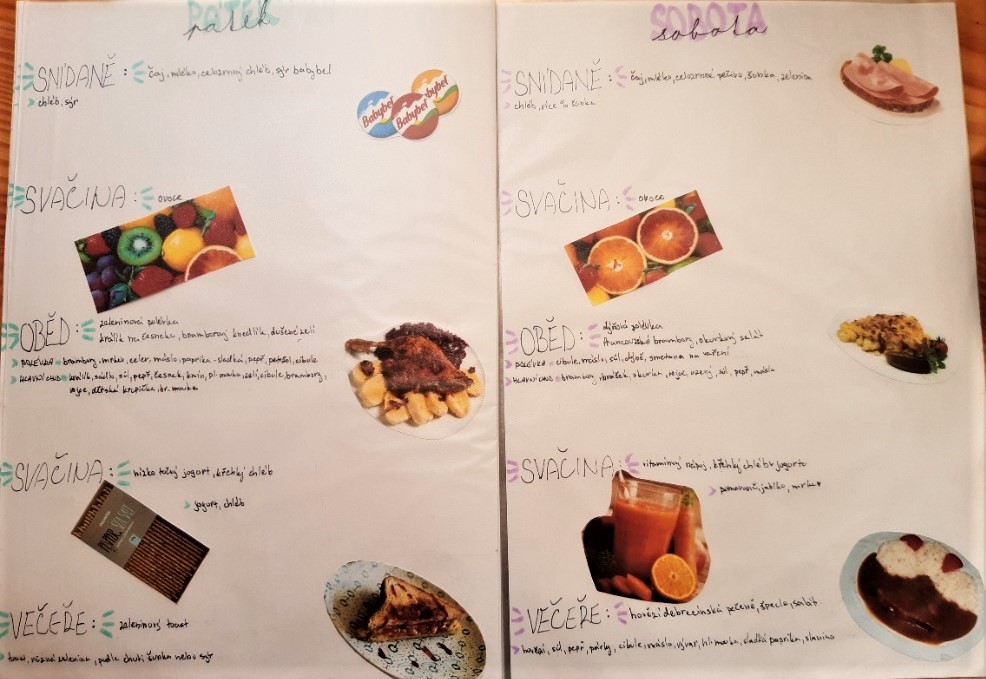 PÁTEK
pátek
SNÍDANĚ: čaj, mléko, celozrnný chléb, sýr babybel
chléb, sýr
Babybel
Babybel
Babybel
SVAČINA: ovoce
OBĚD: zeleninová polévka
králík na česneku, bramborový knedlík, dušené zelí
POLÉVKA brambory, mrkev, celer, máslo, paprika - sladká, pepř, petržel, cibule
HLAVNÍ CHOD králík, sádlo, sůl, pepř, česnek, kmín, pl. mouka, zelí, cibule, brambory,
vejce, dětská krupička, br. mouka
SVAČINA: nízko tučný jogurt, křehký chléb
jogurt, chléb
VEČEŘE: zeleninový toast
toast, různá zelenina, podle chuti šunka nebo sýr
SOBOTA
sobota
SNÍDANĚ: čaj, mléko, celozrnné pečivo, šunka, zelenina
chléb, více % šunka
SVAČINA: ovoce
OBĚD: polévka
francouzské brambory, okurkový salát
POLÉVKA cibule, máslo, sůl, smetana na vaření
HLAVNÍ CHOD brambory, hrášek, okurka, vejce, uzený, sůl, pepř, máslo
SVAČINA: vitamínový nápoj, křehký chléb v jogurtu
pomeranč, jablko, mrkev
VEČEŘE: hovězí debrecínská pečeně, špecle, salát
hovězí, sůl, pepř, párky, cibule, máslo, vývar, hl. mouka, sladká paprika, slanina